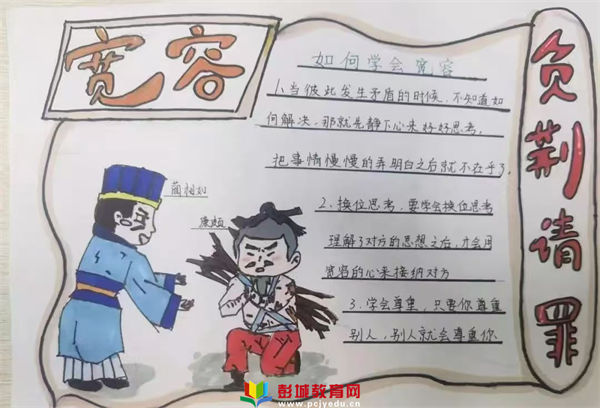 宽容
如何学会宽容
1、当彼此发生矛盾的时候，不知道如
何解决，那就先静下心来好好思考，
把事情慢慢的弄明白之后就不在乎了，
2、换位思考，要学会换位思考
理解了对方的思想之后，才会用
宽容的心来接纳对方
3、学会尊重，只要你尊重
别人，别人就会尊重你
负荆请罪
蔺相如
廉颇
彭城教育网
www.pcjyedu.cn